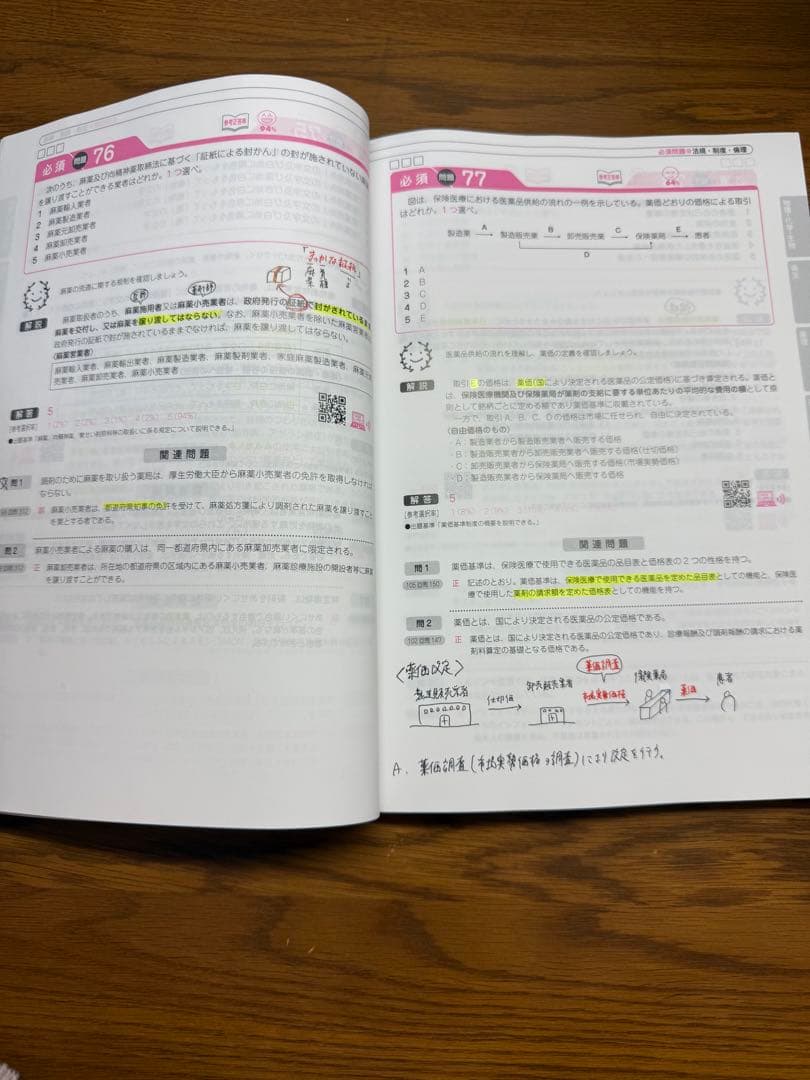 参考正答率
94%
必須 問題 76
次のうち、麻薬及び向精神薬取締法に基づく「証紙による封かん」の封が施されていない
を譲り渡すことができる業者はどれか。1つ選べ。
1 麻薬輸入業者
2 麻薬製造業者
3 麻薬元卸売業者
4 麻薬卸売業者
5 麻薬小売業者
麻薬の流通に関する規制を確認しましょう。
医師
薬剤師
解説
麻薬取扱者のうち、麻薬施用者又は麻薬小売業者は、政府発行の証紙で封がされているまま
麻薬を交付し、又は麻薬を譲り渡してはならない。なお、麻薬小売業者を除いた麻薬営業者
政府発行の証紙で封が施されているままでなければ、麻薬を譲り渡してはならない。
〈麻薬営業者〉
麻薬輸入業者、麻薬輸出業者、麻薬製造業者、麻薬製剤業者、家庭麻薬製造業者、麻薬元
売業者、麻薬卸売業者、麻薬小売業者
解答 5
[参考選択率] 5(94%)
●出題基準「麻薬、向精神薬、覚せい剤原料等の取扱いに係る規定について説明できる。」
関連問題
問1
調剤のために麻薬を取り扱う薬局は、厚生労働大臣から麻薬小売業者の免許を取得しなければ
ならない。
麻薬小売業者は、都道府県知事の免許を受けて、麻薬処方箋により調剤された麻薬を譲り渡すこと
を業とする者である。
問2
麻薬小売業者による麻薬の購入は、同一都道府県内にある麻薬卸売業者に限定される。
正 麻薬卸売業者は、所在地の都道府県の区域内にある麻薬小売業者、麻薬診療施設の開設者等に麻薬
を譲り渡すことができる。
必須問題 法規・制度・倫理
64%
必須 問題 77
図は、保険医療における医薬品供給の流れの一例を示している。薬価どおりの価格による取引
はどれか。1つ選べ。
製造業 A 製造販売業 B 卸売販売業 C 保険薬局 E 患者
D
1 A
2 B
3 C
4 D
5 E
医薬品供給の流れを理解し、薬価の定義を確認しましょう。
解説
取引Eの価格は、薬価(国により決定される医薬品の公定価格)に基づき算定される。薬価と
は、保険医療機関及び保険薬局が薬剤の支給に要する単位あたりの平均的な費用の額として原
則として銘柄ごとに定める額であり薬価基準に収載されている。
一方で、取引A、B、C、Dの価格は市場に任せられ、自由に決定されている。
〈自由価格のもの〉
・A:製造業者から製造販売業者へ販売する価格
・B:製造販売業者から卸売販売業者へ販売する価格(仕切価格)
・C:卸売販売業者から保険薬局へ販売する価格(市場実勢価格)
・D:製造販売業者から保険薬局へ販売する価格
解答 5
[参考選択率]
●出題基準「薬価基準制度の概要を説明できる。」
関連問題
問1
薬価基準は、保険医療で使用できる医薬品の品目表と価格表の2つの性格を持つ。
105回問150
正 記述のとおり。薬価基準は、保険医療で使用できる医薬品を定めた品目表としての機能と、保険医
療で使用した薬剤の請求額を定めた価格表としての機能を持つ。
問2
薬価とは、国により決定される医薬品の公定価格である。
102回問147
正 薬価とは、国により決定される医薬品の公定価格であり、診療報酬及び調剤報酬の請求における薬
剤料算定の基礎となる価格である。
〈薬価改定〉
薬価調査
製造販売業者 仕切価 卸売販売業者 市場実勢価格 保険薬局 薬価 患者
A. 薬価調査(市場実勢価格の調査)により改定を行う。